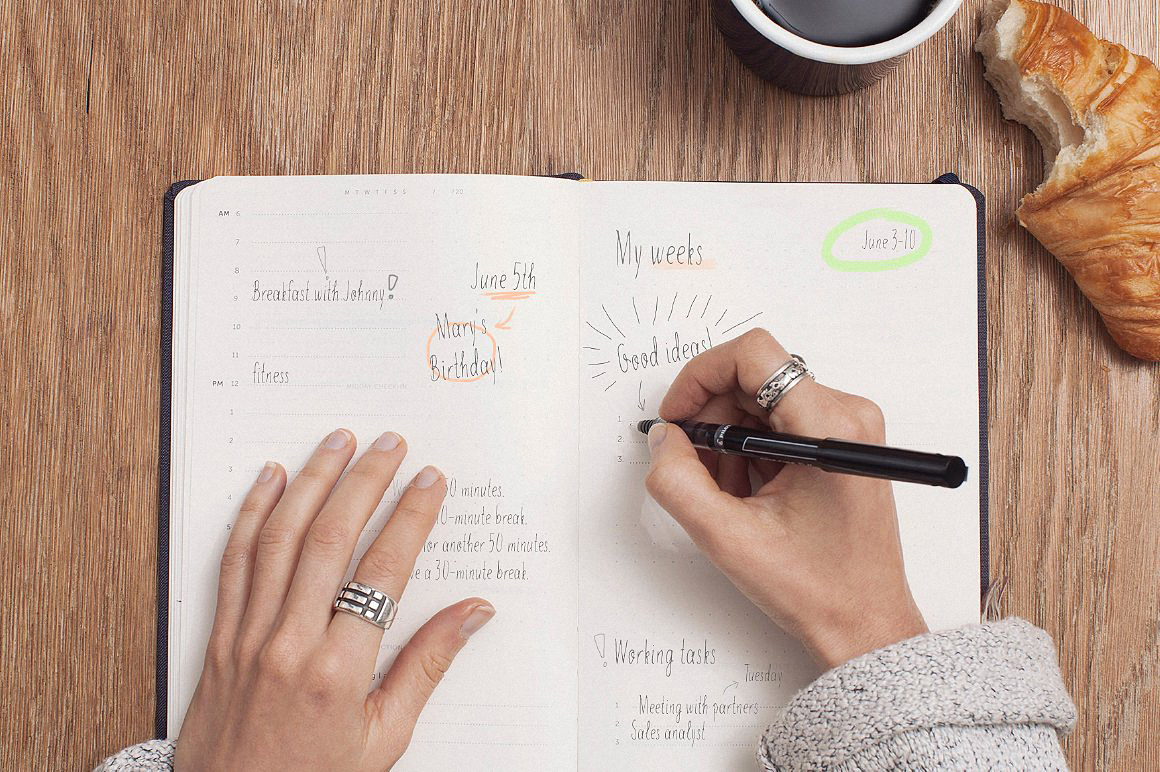 M T W T F S S / /20
AM 6
7
8
Breakfast with Johnny!
9
10
11
fitness
PM 12
1
2
3
4
5
June 5th
Mary's
Birthday!
50 minutes.
10-minute break.
for another 50 minutes.
a 30-minute break.
My weeks
June 3-10
Good ideas!
1
2
3
Working tasks
Tuesday
1 Meeting with partners
2 Sales analyst
3